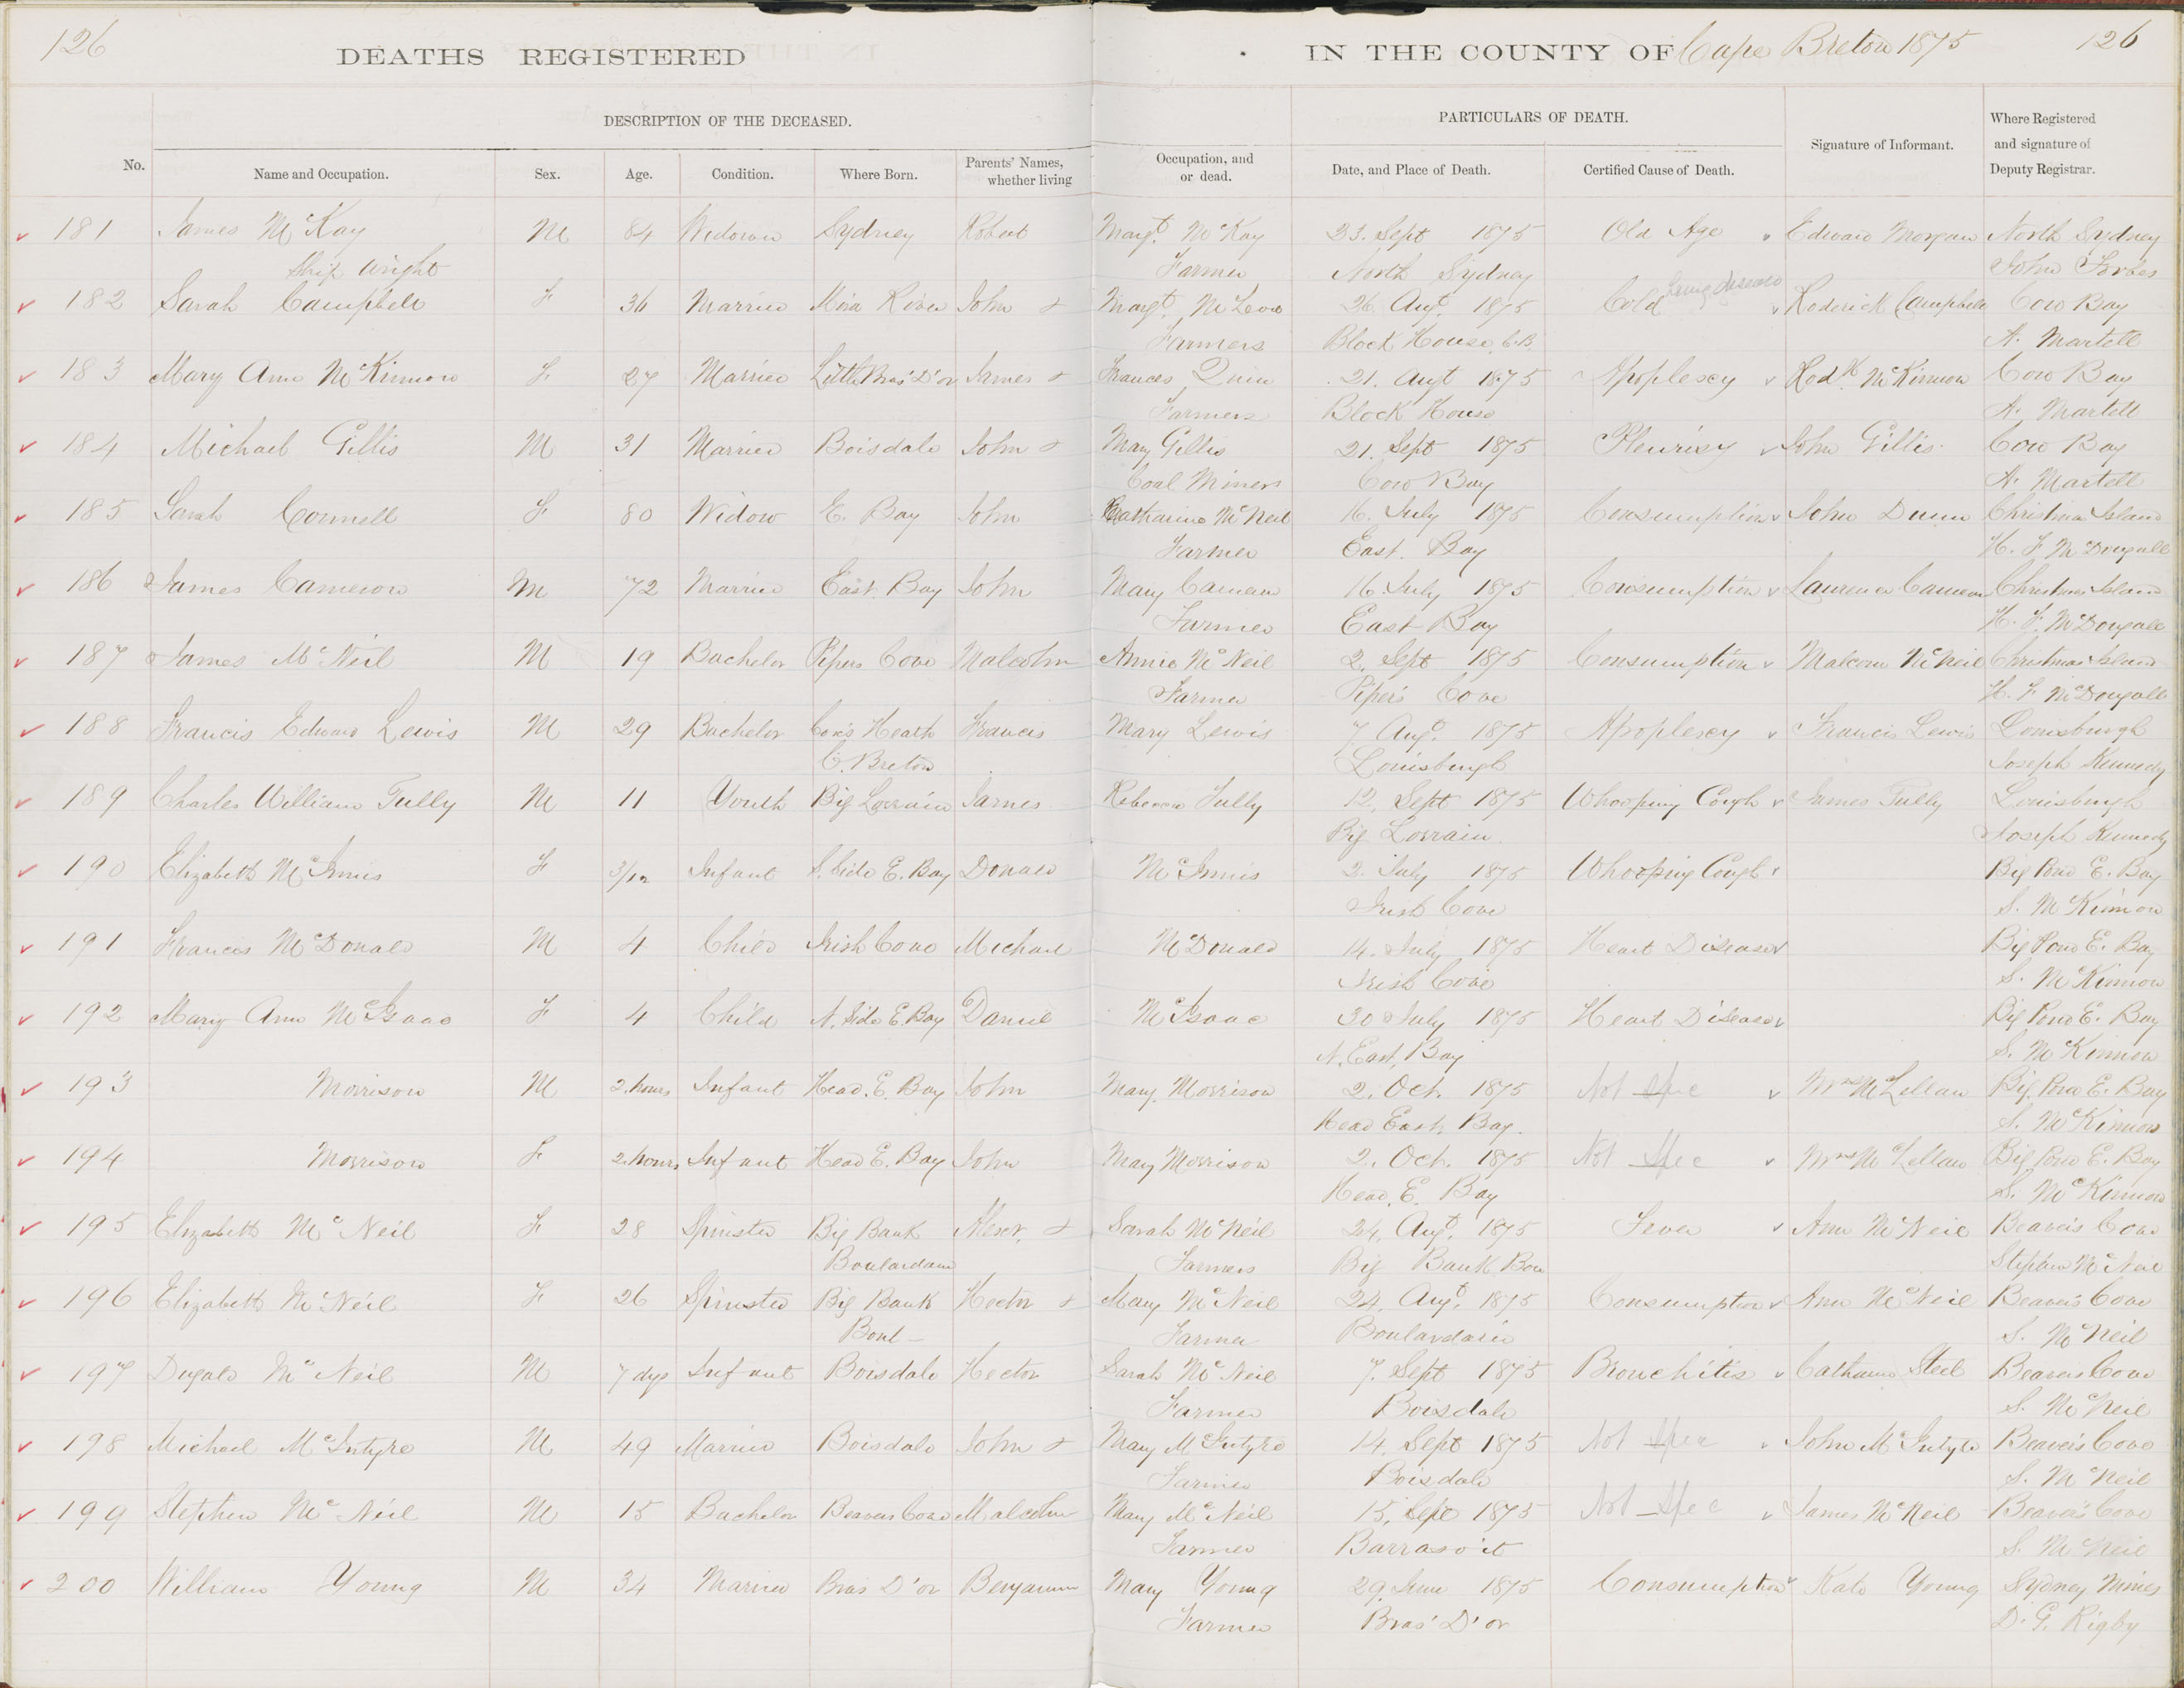 126
DEATHS REGISTERED
IN THE COUNTY OF Cape Breton 1875
126
DESCRIPTION OF THE DECEASED.
PARTICULARS OF DEATH.
Signature of Informant.
Where Registered and signature of Deputy Registrar.
No. Name and Occupation. Sex. Age. Condition. Where Born. Parents' Names, whether living Occupation, and or dead. Date, and Place of Death. Certified Cause of Death.
181 James McKay M 84 Widower Sydney Robert Margt. McKay 23. Sept 1875 Old Age Edward Morgan North Sydney
Ship Wright Farmer North Sydney John Forbes
182 Sarah Campbell F 36 Married Mira River John & Margt. McLeod 26. Augt. 1875 Cold Lung disease Roderick Campbell Cow Bay
Farmers Block House, C.B. A. Martell
183 Mary Ann McKinnon F 27 Married Little Bras D'or James & Frances Quin 21. Augt 1875 Apoplexy Rodk. McKinnon Cow Bay
Farmers Block House A. Martell
184 Michael Gillis M 31 Married Boisdale John & Mary Gillis 21. Sept 1875 Pleurisy John Gillis Cow Bay
Coal Miners Cow Bay A. Martell
185 Sarah Connell F 80 Widow E. Bay John Catharine McNeil 16. July 1875 Consumption John Dunn Christmas Island
Farmer East. Bay H. F. McDougall
186 James Cameron M 72 Married East. Bay John Mary Cameron 16. July 1875 Consumption Laurence Cameron Christmas Island
Farmer East Bay H. F. McDougall
187 James McNeil M 19 Bachelor Pipers Cove Malcolm Annie McNeil 2. Sept 1875 Consumption Malcom McNeil Christmas Island
Farmer Piper's Cove H. F. McDougall
188 Francis Edward Lewis M 29 Bachelor Cox's Heath Francis Mary Lewis 7 Augt. 1875 Apoplexy Francis Lewis Louisburgh
C. Breton Louisburgh Joseph Kennedy
189 Charles William Tully M 11 Youth Big Lorrain James Rebecca Tully 12. Sept 1875 Whooping Cough James Tully Louisburgh
Big Lorrain. Joseph Kennedy
190 Elizabeth McInnis F 3/12 Infant S. Side E. Bay Donald McInnis 2. July 1875 Whooping Cough Big Pond E. Bay
Irish Cove S. McKinnon
191 Francis McDonald M 4 Child Irish Cove Michael McDonald 14. July 1875 Heart Disease Big Pond E. Bay
Irish Cove S. McKinnon
192 Mary Ann McIsaac F 4 Child N. Side E. Bay Daniel McIsaac 30 July 1875 Heart Disease Big Pond E. Bay
N. East, Bay S. McKinnon
193 Morrison M 2. hours Infant Head. E. Bay John Mary Morrison 2. Oct. 1875 Not Spec Mrs McLellan Big Pond E. Bay
Head East. Bay. S. McKinnon
194 Morrison F 2. hours Infant Head E. Bay John Mary Morrison 2. Oct. 1875 Not Spec Mrs McLellan Big Pond E. Bay
Head. E. Bay S. McKinnon
195 Elizabeth McNeil F 28 Spinster Big Bank Alexr. & Sarah McNeil 24, Augt. 1875 Fever Ann McNeil Beaver's Cove
Boulardarie Farmers Big Bank Bou Stephen McNeil
196 Elizabeth McNeil F 26 Spinster Big Bank Hector & Mary McNeil 24, Augt. 1875 Consumption Ann McNeil Beaver's Cove
Boul- Farmer Boulardarie S. McNeil
197 Dugald McNeil M 7 dys Infant Boisdale Hector Sarah McNeil 7. Sept 1875 Bronchitis Catharine Steel Beavers Cove
Farmer Boisdale S. McNeil
198 Michael McIntyre M 49 Married Boisdale John & Mary McIntyre 14, Sept 1875 Not Spec John McIntyre Beaver's Cove
Farmer Boisdale S. McNeil
199 Stephen McNeil M 15 Bachelor Beavers Cove Malcolm Mary McNeil 15, Sept 1875 Not Spec James McNeil Beaver's Cove
Farmer Barrasoit S. McNeil
200 William Young M 34 Married Bras D'or Benjamin Mary Young 29. June 1875 Consumption Kate Young Sydney Mines
Farmer Bras' D'or D. G. Rigby